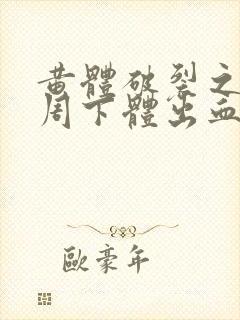 黄體破裂之
周下體出血
歐豪年